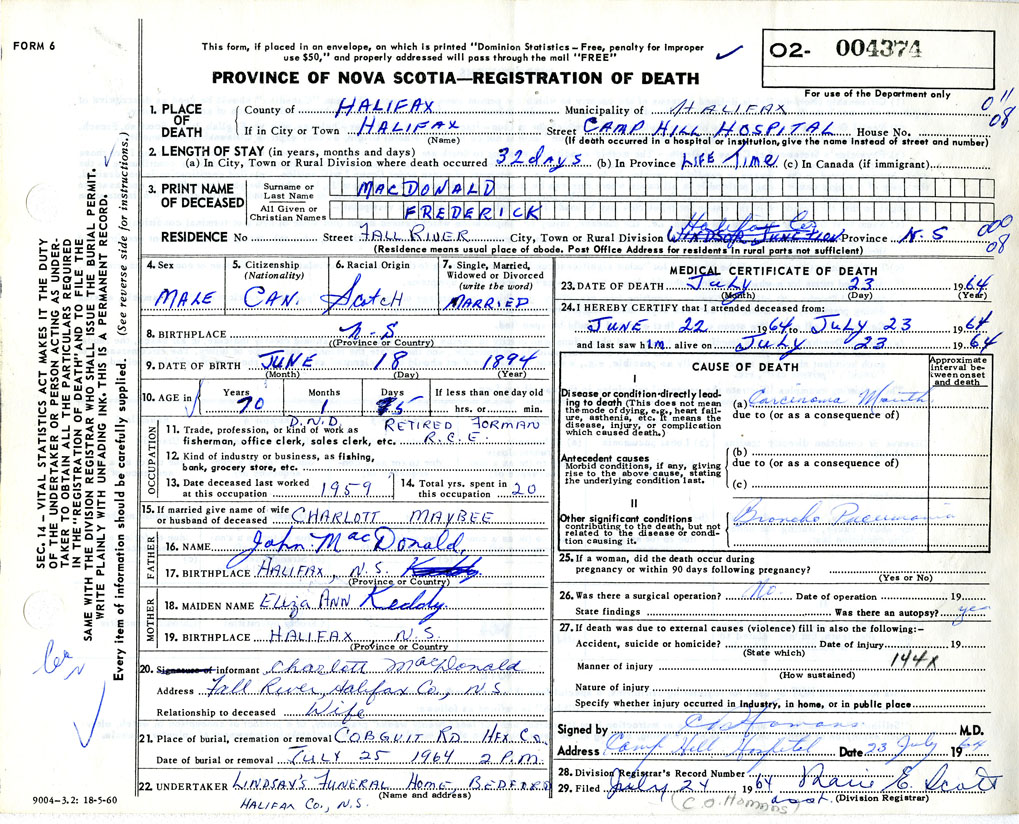 FORM 6
This form, if placed in an envelope, on which is printed "Dominion Statistics – Free, penalty for improper
use $50," and properly addressed will pass through the mail "FREE"
O2- 004374
PROVINCE OF NOVA SCOTIA—REGISTRATION OF DEATH
For use of the Department only
011
08
1. PLACE OF DEATH
County of HALIFAX Municipality of HALIFAX
If in City or Town HALIFAX Street CAMP HILL HOSPITAL House No.
(Name) (If death occurred in a hospital or institution, give the name instead of street and number)
2. LENGTH OF STAY (in years, months and days)
(a) In City, Town or Rural Division where death occurred 32 days (b) In Province LIFE TIME (c) In Canada (if immigrant)
3. PRINT NAME OF DECEASED
Surname or Last Name MACDONALD
All Given or Christian Names FREDERICK
000
08
Halifax Co.
RESIDENCE No Street FALL RIVER City, Town or Rural Division WINDSOR JUNCTION Province N.S
(Residence means usual place of abode. Post Office Address for residents in rural parts not sufficient)
4. Sex MALE
5. Citizenship (Nationality) CAN.
6. Racial Origin Scotch
7. Single, Married, Widowed or Divorced (write the word) MARRIED
8. BIRTHPLACE N-S
(Province or Country)
9. DATE OF BIRTH JUNE 18 1894
(Month) (Day) (Year)
10. AGE in Years 70 Months 1 Days 5 If less than one day old hrs. or min.
OCCUPATION
D.N.D. RETIRED FORMAN
11. Trade, profession, or kind of work as
fisherman, office clerk, sales clerk, etc. R.C.E.
12. Kind of industry or business, as fishing,
bank, grocery store, etc.
13. Date deceased last worked
at this occupation 1959
14. Total yrs. spent in
this occupation 20
15. If married give name of wife
or husband of deceased CHARLOTT MAYBEE
FATHER
16. NAME John MacDonald,
17. BIRTHPLACE HALIFAX, N.S. Keddy
(Province or Country)
MOTHER
18. MAIDEN NAME ELIZA ANN Keddy
19. BIRTHPLACE HALIFAX, N.S.
(Province or Country)
20. Signature of informant Charlott MacDonald
Address Fall River, Halifax Co., N.S.
Relationship to deceased Wife
21. Place of burial, cremation or removal COBGUIT RD HFX CO.
Date of burial or removal JULY 25 1964 2 P.M.
22. UNDERTAKER LINDSAY'S FUNERAL HOME, BEDFORD
(Name and address)
HALIFAX CO., N.S.
MEDICAL CERTIFICATE OF DEATH
23. DATE OF DEATH July 23 1964
(Month) (Day) (Year)
24. I HEREBY CERTIFY that I attended deceased from:
JUNE 22 1964 to JULY 23 1964
and last saw him alive on JULY 23 1964
CAUSE OF DEATH
Approximate interval between onset and death
I
Disease or condition directly leading to death (This does not mean the mode of dying, e.g., heart failure, asthenia, etc. It means the disease, injury, or complication which caused death.)
(a) Carcinoma Mouth
due to (or as a consequence of)
Antecedent causes
Morbid conditions, if any, giving rise to the above cause, stating the underlying condition last.
(b)
due to (or as a consequence of)
(c)
II
Other significant conditions
contributing to the death, but not related to the disease or condition causing it.
Broncho Pneumonia
25. If a woman, did the death occur during
pregnancy or within 90 days following pregnancy?
(Yes or No)
26. Was there a surgical operation? No. Date of operation 19
State findings Was there an autopsy? yes
27. If death was due to external causes (violence) fill in also the following:–
Accident, suicide or homicide? Date of injury 19
(State which)
Manner of injury 144X
(How sustained)
Nature of injury
Specify whether injury occurred in Industry, in home, or in public place
Signed by C O Homans M.D.
Address Camp Hill Hospital Date 23 July 1964
28. Division Registrar's Record Number
29. Filed July 24 1964 Marie E. Scott
(C.O. Homans) asst. (Division Registrar)
SEC. 14 – VITAL STATISTICS ACT MAKES IT THE DUTY
OF THE UNDERTAKER OR PERSON ACTING AS UNDER-
TAKER TO OBTAIN ALL THE PARTICULARS REQUIRED
IN THE "REGISTRATION OF DEATH" AND TO FILE THE
SAME WITH THE DIVISION REGISTRAR WHO SHALL ISSUE THE BURIAL PERMIT.
WRITE PLAINLY WITH UNFADING INK. THIS IS A PERMANENT RECORD.
Every item of information should be carefully supplied. (See reverse side for instructions.)
9004-3.2: 18-5-60